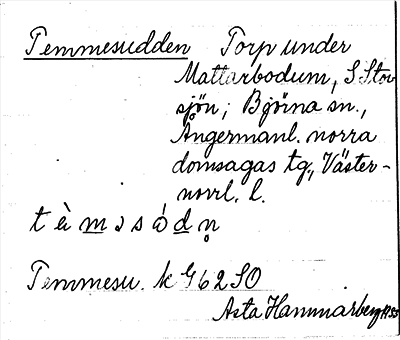 Temmesudden Torp under
Mattarbodum, S Stor
sjön; Björna sn.,
Ångermanl. norra
domsagas tg, Väster-
norrl. l.
Temmesu. k G62 SO
Asta Hammarberg 1935